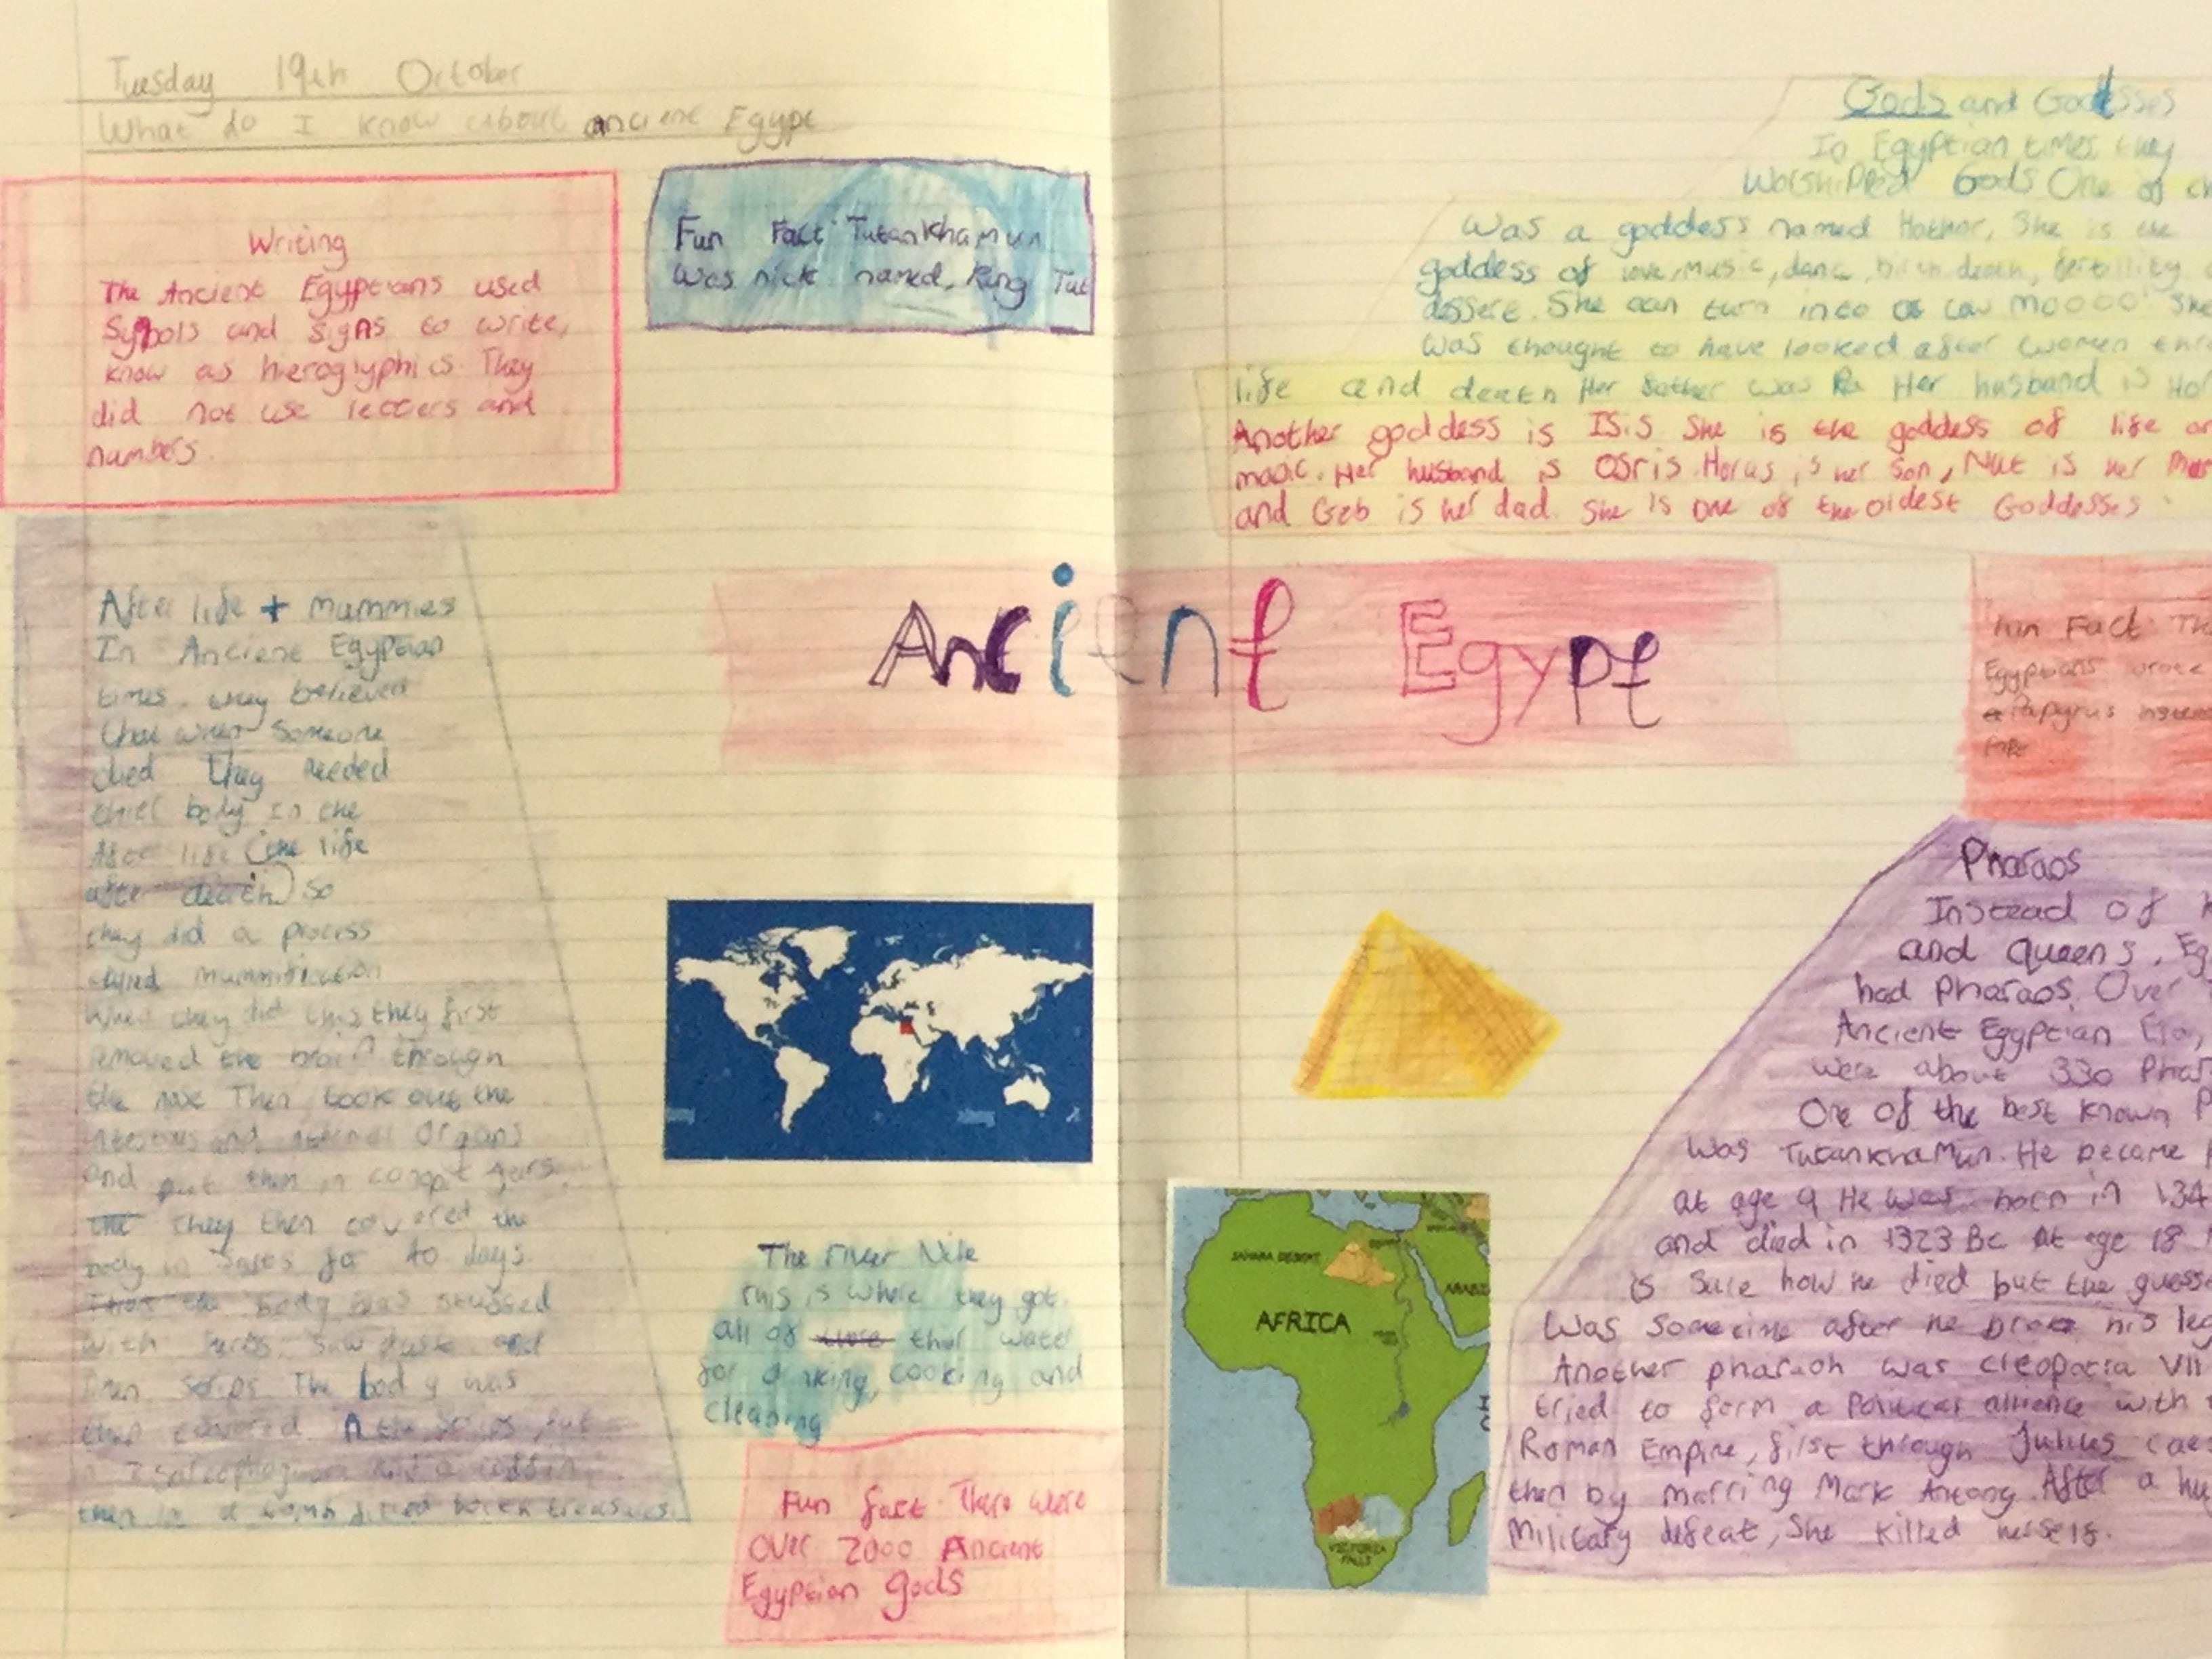 Tuesday 19th October
What do I know about ancient Egypt
Writing
The Ancient Egyptians used
Sybols and signs to write,
know as hieroglyphics. They
did not use letters and
numbers.
Fun Fact Tutankhamun
Was nick named, King Tut
After life + mummies
In Ancient Egyptian
times they believed
that when Someone
died They needed
thier body in the
After life (the life
after death) So
they did a process
called mummification
When they did this they first
removed the brain through
the nose Then took out the
and internal Organs
and put them in canopt
They then covered the
body in salts for 40 days.
Then the body was stuffed
with herbs, Saw dust and
The body was
then covered
then in a tomb filled treasures.
Ancient Egypt
The river Nile
This is where they got
all of thier water
for drinking, cooking and
cleaning
Fun fact. There were
over 2000 Ancient
Egyptian gods
Gods and Goddesses
In Egyptian times they
Worshipped Gods One of
Was a goddess named Hathor, She is the
goddess of love, music, danc, birth death, fertility
She can turn into a cow mOOOO She
was thought to have looked after women
life and death Her father was Ra Her husband is
Another goddess is ISiS She is the goddess of life
magic. Her husband is OSris. Horus is her Son, Nut is her
and Geb is her dad. She is one of the oldest Goddesses
Fun Fact
Egyptians wrote
Papyrus
SAHARA DESERT
EGYPT
AFRICA
VICTORIA FALLS
Pharaos
Instead of
and queens,
had Pharaos. Over
Ancient Egyptian Era,
were about 330
One of the best known
was Tutankhamun. He became
at age 9 He was born in 134
and died in 1323 Bc At age 18
is Sure how he died but the
Was Sometime after he broke his
Another pharaoh was cleopatra VII
tried to form a Political alliance with
Roman Empire, first through Julius
then by marring Mark Antony. After a
Military defeat, She killed herself.